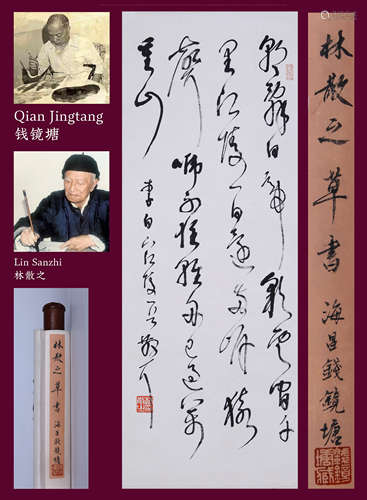 Qian Jingtang
钱镜塘
Lin Sanzhi
林散之
林散之草書 海昌錢鏡塘
朝辭白帝彩雲間千
里江陵一日還兩岸猿
聲啼不住輕舟已過萬
重山
李白下江陵
林散之草書 海昌錢鏡塘